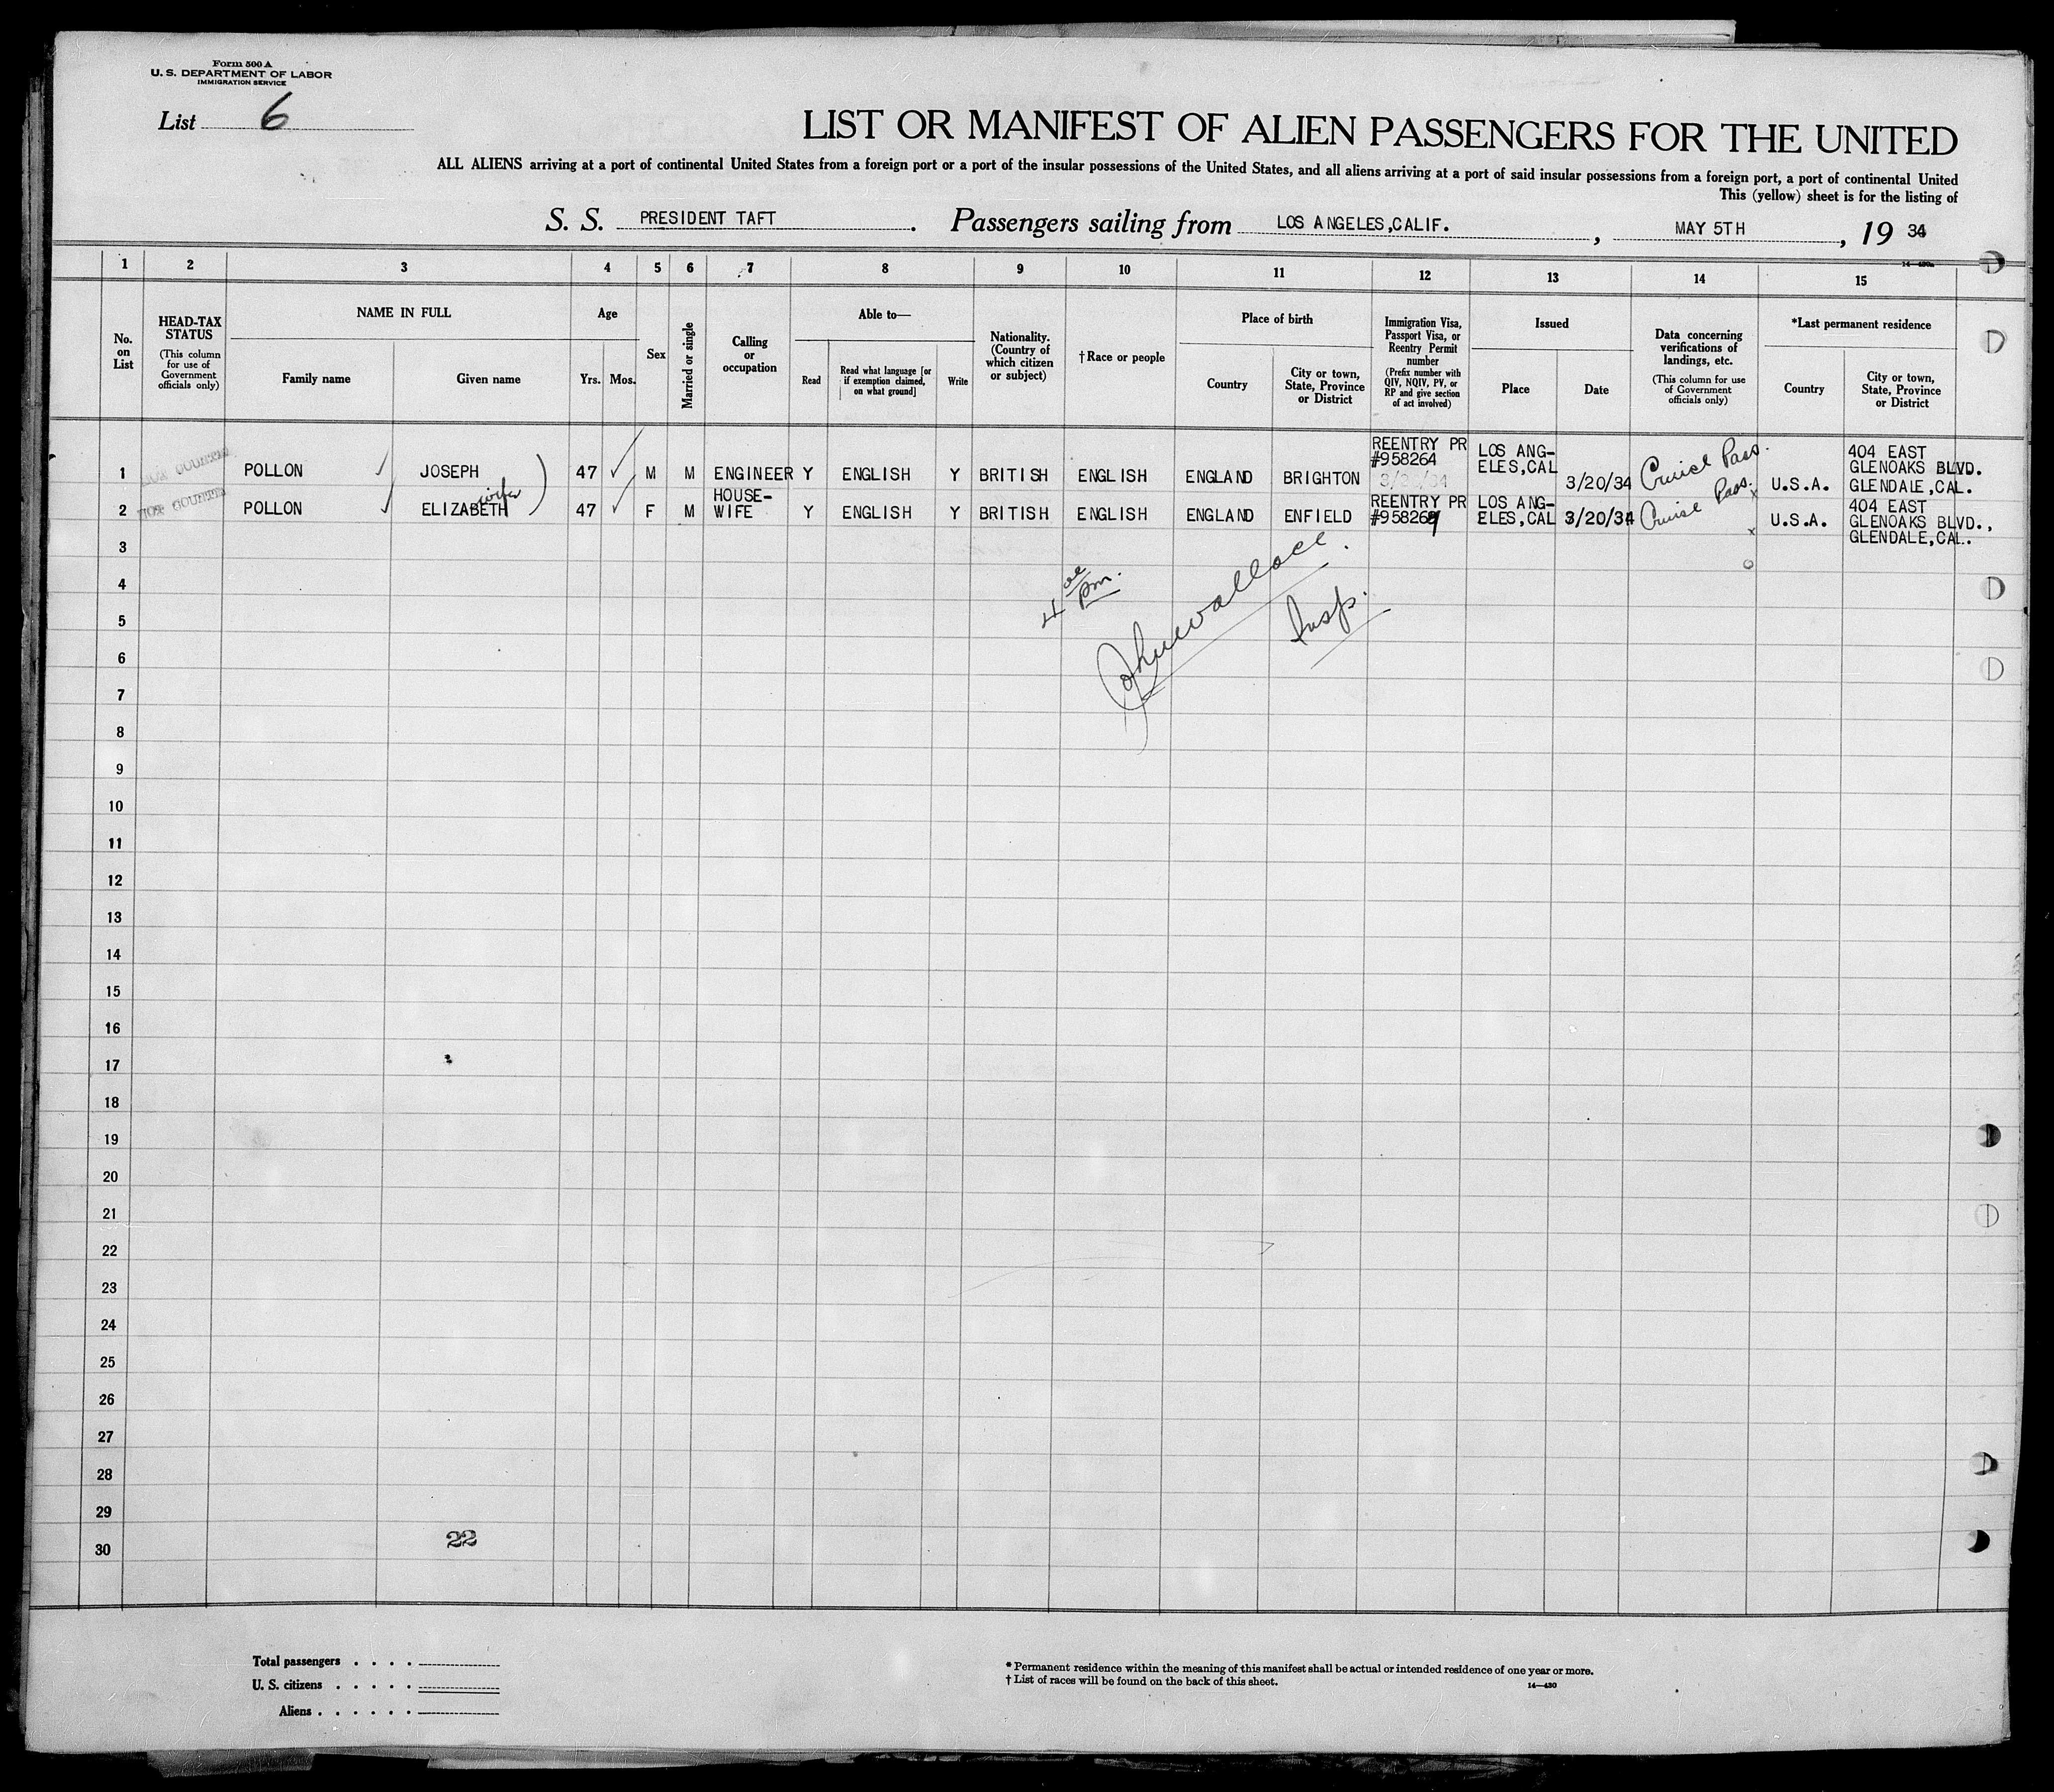 Form 500 A
U. S. DEPARTMENT OF LABOR
IMMIGRATION SERVICE
List 6
LIST OR MANIFEST OF ALIEN PASSENGERS FOR THE UNITED
ALL ALIENS arriving at a port of continental United States from a foreign port or a port of the insular possessions of the United States, and all aliens arriving at a port of said insular possessions from a foreign port, a port of continental United
This (yellow) sheet is for the listing of
S. S. PRESIDENT TAFT. Passengers sailing from LOS ANGELES,CALIF., MAY 5TH, 19 34
1 2 3 4 5 6 7 8 9 10 11 12 13 14 15
No. on List
HEAD-TAX STATUS
(This column for use of Government officials only)
NAME IN FULL
Family name Given name
Age
Yrs. Mos.
Sex
Married or single
Calling or occupation
Able to—
Read
Read what language [or if exemption claimed, on what ground]
Write
Nationality. (Country of which citizen or subject)
†Race or people
Place of birth
Country
City or town, State, Province or District
Immigration Visa, Passport Visa, or Reentry Permit number
(Prefix number with QIV, NQIV, PV, or RP and give section of act involved)
Issued
Place Date
Data concerning verifications of landings, etc.
(This column for use of Government officials only)
*Last permanent residence
Country
City or town, State, Province or District
1 POLLON JOSEPH 47 M M ENGINEER Y ENGLISH Y BRITISH ENGLISH ENGLAND BRIGHTON REENTRY PR #958264 LOS ANG-ELES,CAL 3/20/34 Cruise Pass. U.S.A. 404 EAST GLENOAKS BLVD. GLENDALE,CAL.
NON COUNTED
2 POLLON ELIZABETH wife 47 F M HOUSE-WIFE Y ENGLISH Y BRITISH ENGLISH ENGLAND ENFIELD REENTRY PR LOS ANG-ELES,CAL 3/20/34 Cruise Pass. U.S.A. 404 EAST GLENOAKS BLVD., GLENDALE,CAL.
3
4
4 pm.
5
John Wallace.
Insp.
6
7
8
9
10
11
12
13
14
15
16
17
18
19
20
21
22
23
24
25
26
27
28
29
30
22
Total passengers . . . .
U. S. citizens . . . . .
Aliens . . . . . .
* Permanent residence within the meaning of this manifest shall be actual or intended residence of one year or more.
† List of races will be found on the back of this sheet.
14—430